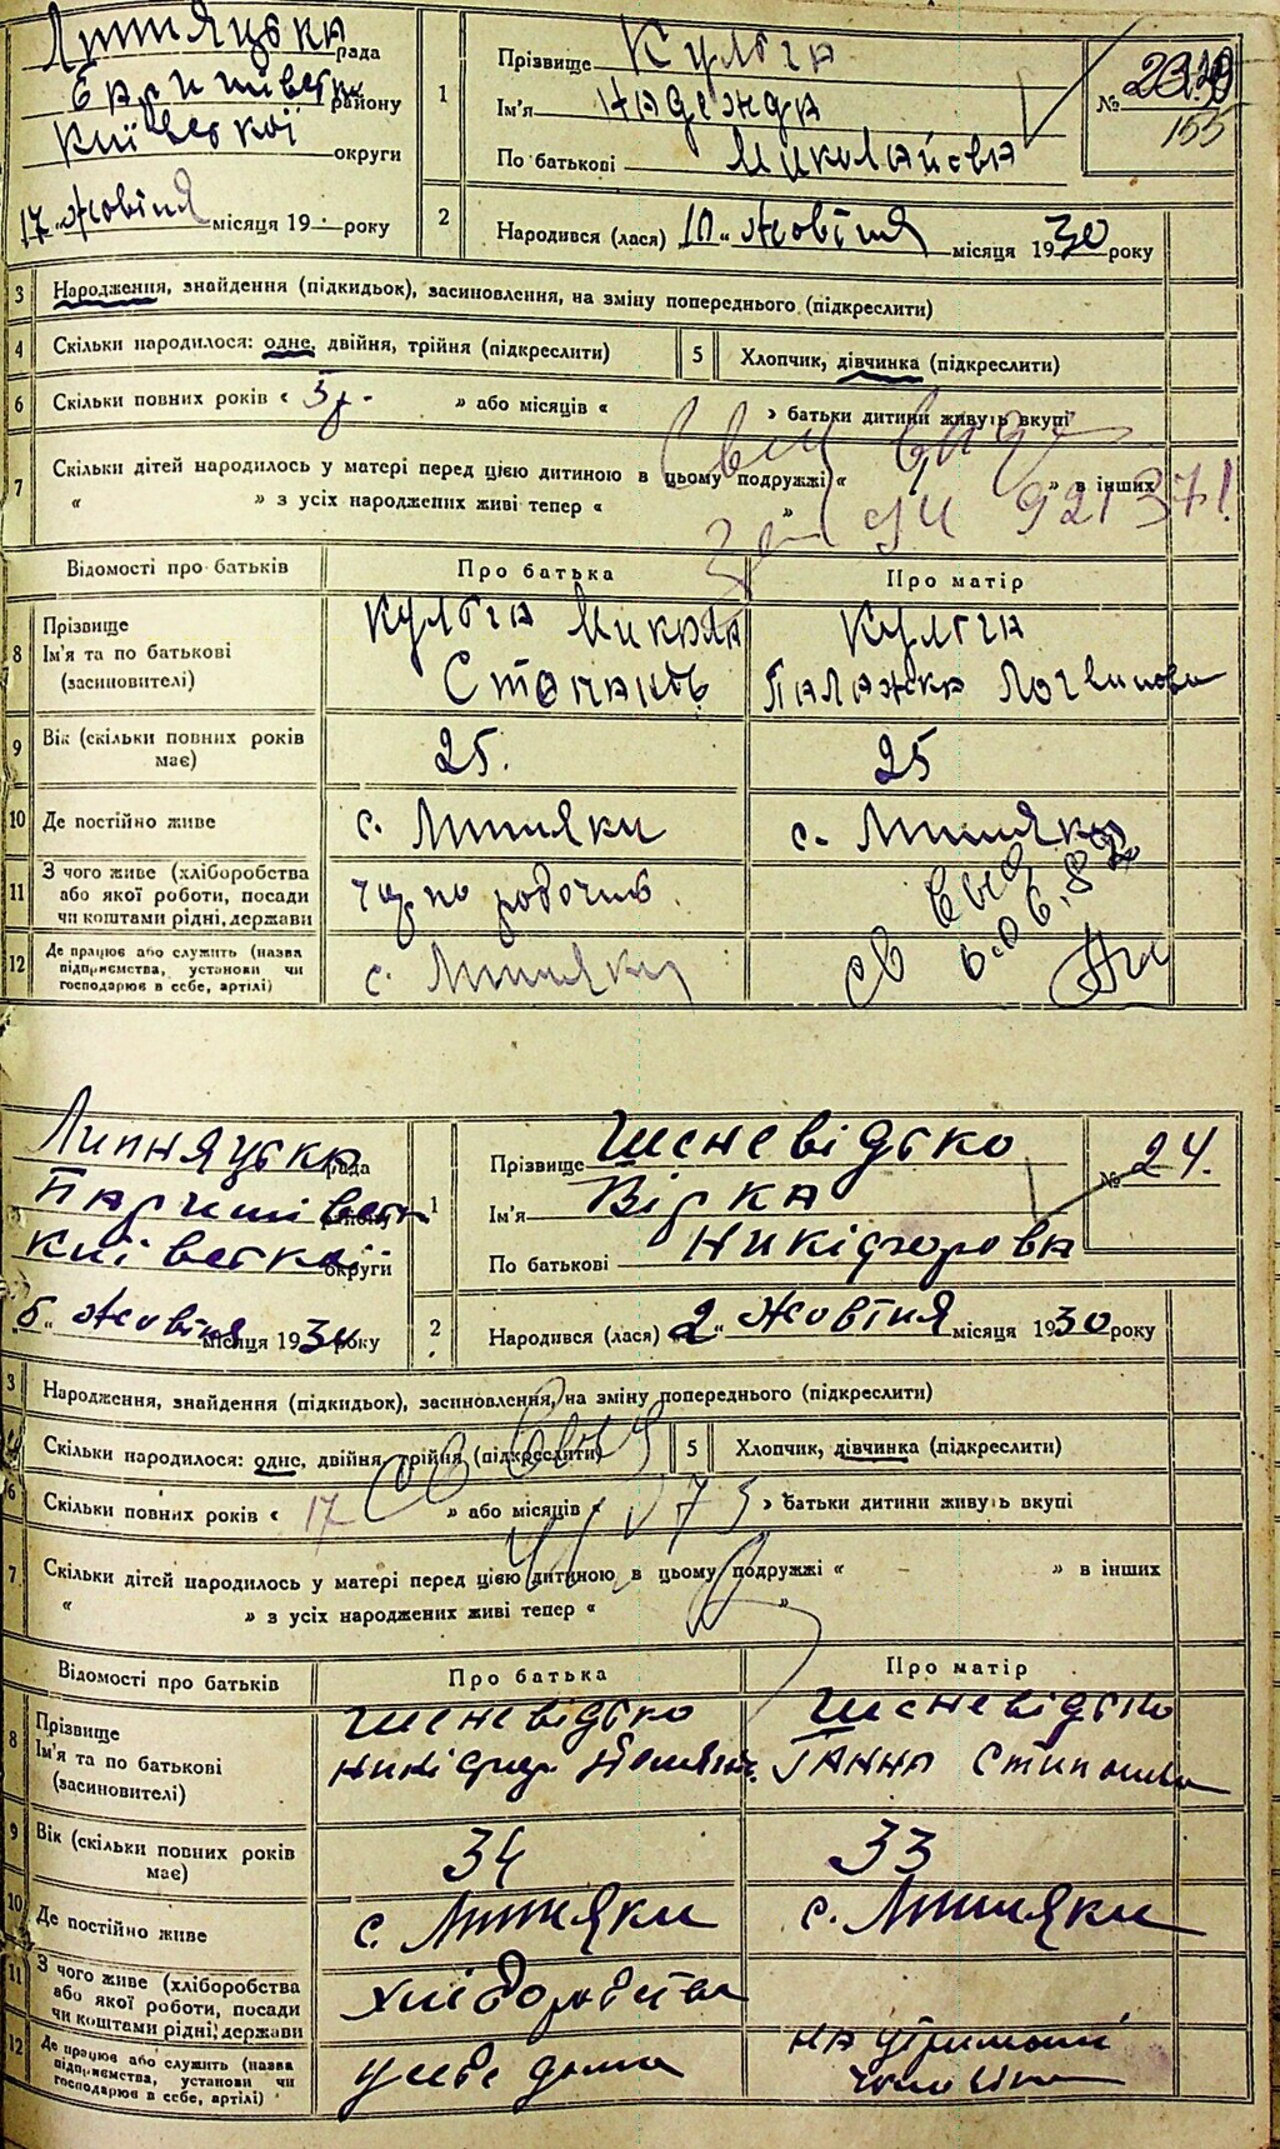 Липняцька рада
Баришівськ району
Київської округи
17 " жовтня місяця 19 року
1
Прізвище Кульга
Ім'я Надежда
По батькові Миколаївна
№
155
2
Народився (лася) 10 " жовтня місяця 1930 року
3
Народження, знайдення (підкидьок), засиновлення, на зміну попереднього (підкреслити)
4
Скільки народилося: одне, двійня, трійня (підкреслити)
5
Хлопчик, дівчинка (підкреслити)
6
Скільки повних років « 5 р. » або місяців « » батьки дитини живуть вкупі
7
Скільки дітей народилось у матері перед цією дитиною в цьому подружжі « » в інших
« » з усіх народжених живі тепер « »
Відомості про батьків
Про батька
Про матір
8
Прізвище
Ім'я та по батькові
(засиновителі)
Кульга Микола
Кульга
Палажка Логвинов
9
Вік (скільки повних років
має)
25.
25
10
Де постійно живе
с. Липняки
с. Липняки
11
З чого живе (хліборобства
або якої роботи, посади
чи коштами рідні, держави
12
Де працює або служить (назва
підприємства, установи чи
господарює в себе, артілі)
с. Липняки
Липняцька рада
Паришівськ району
Київської округи
місяця 1930 року
1
Прізвище Шсневідько
Ім'я Вірка
По батькові Никіфоровна
№ 24.
2
Народився (лася) « 2 " жовтня місяця 1930 року
3
Народження, знайдення (підкидьок), засиновлення, на зміну попереднього (підкреслити)
Скільки народилося: одне, двійня, трійня (підкреслити)
5
Хлопчик, дівчинка (підкреслити)
6
Скільки повних років « 17 » або місяців « » батьки дитини живуть вкупі
7
Скільки дітей народилось у матері перед цією дитиною в цьому подружжі « - » в інших
« » з усіх народжених живі тепер « »
Відомості про батьків
Про батька
Про матір
8
Прізвище
Ім'я та по батькові
(засиновителі)
Шсневідько
Никіфор
Шсневідько
Ганна
9
Вік (скільки повних років
має)
34
33
10
Де постійно живе
с. Липняки
с. Липняки
11
З чого живе (хліборобства
або якої роботи, посади
чи коштами рідні, держави
хліборобства
12
Де працює або служить (назва
підприємства, установи чи
господарює в себе, артілі)
у себе дома
на утриманні
чоловіка